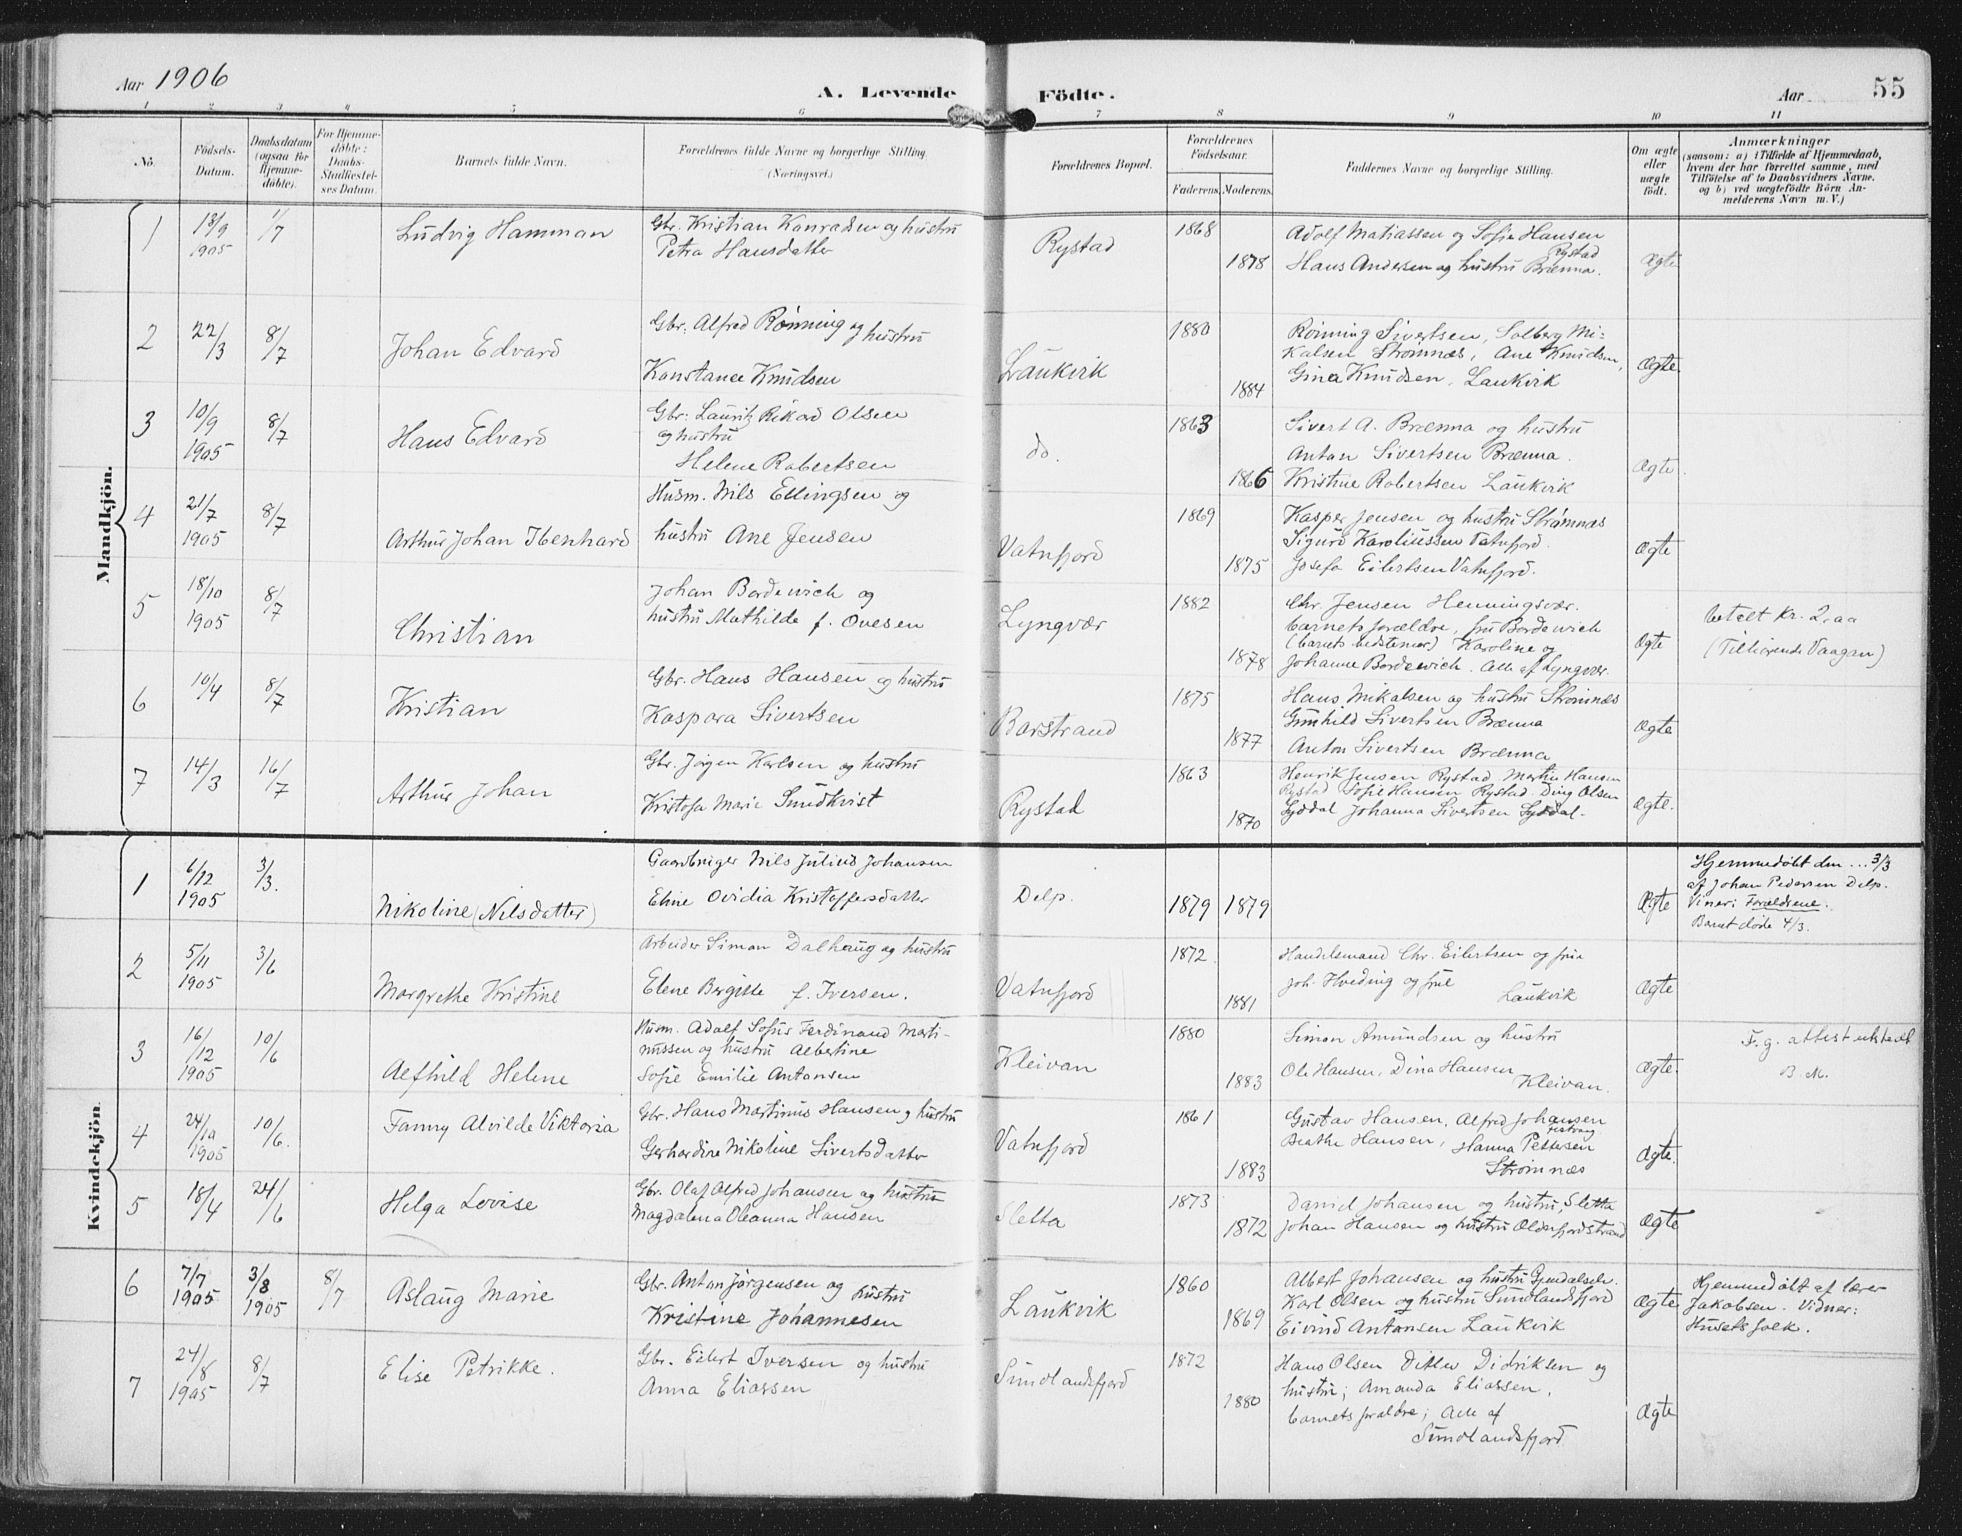 Aar 1906
A. Levende Födte.
Aar 55
1 2 3 4 5 6 7 8 9 10 11
No.
Födsels-
Datum.
Daabsdatum
(ogsaa for
Hjemme-
döbte).
For Hjemme-
döbte:
Daabs-
Stadfæstel-
ses Datum.
Barnets fulde Navn.
Forældrenes fulde Navne og borgerlige Stilling
(Næringsvei.)
Forældrenes Bopæl.
Forældrenes
Födselsaar.
Faderens. Moderens.
Faddernes Navne og borgerlige Stilling.
Om ægte
eller
uægte
födt.
Anmærkninger
(saasom: a) i Tilfælde af Hjemmedaab,
hvem der har forrettet samme, med
Tilföielse af to Daabsvidners Navne,
og b) ved uægtefödte Börn An-
melderens Navn m. V.)
Mandkjön.
1
13/9
1905
1/7
Ludvig Hamman
Gbr. Kristian Konradsen og hustru
Petra Hansdatter
Rystad
1868
1878
Adolf Matiassen og Sofie Hansen
Rystad
Hans Andersen og hustru Brænna.
Ægte
2
22/3
8/7
Johan Edvard
Gbr. Alfred Rönning og hustru
Konstance Knudsen
Laukvik
1880
1884
Rönning Sivertsen, Solberg Mi-
kalsen Strömnæs, Ane Knudsen,
Gina Knudsen, Laukvik
Ægte.
3
10/9
1905
8/7
Hans Edvard
Gbr: Lauritz Rikard Olsen
og hustru
Helene Robertsen
do.
1863
1866
Sivert A. Brænna og hustru
Anton Sivertsen Brænna.
Kristine Robertsen Laukvik
Ægte.
4
21/7
1905
8/7
Arthur Johan Ibenhard
Husm. Nils Ellingsen og
hustru Ane Jensen
Vatnfjord
1869
1875
Kasper Jensen og hustru Strömnæs
Sigurd Karoliussen Vatnfjord.
Josefa Eilertsen Vatnfjord.
Ægte
5
18/10
1905
8/7
Christian
Johan Bordewich og
hustru Mathilde f. Ovesen
Lyngvær
1882
1878
Chr. Jensen Henningsvær.
barnets forældre, fru Bordewich
(barnets bedstemor) Karoline og
Johanne Bordewich. Alle af Lyngvær.
Ægte
betelt kr. 2,00
(Tilhörende Vaagan)
6
10/4
8/7
Kristian
Gbr. Hans Hansen og hustru
Kaspara Sivertsen
Barstrand
1875
1877
Hans Mikalsen og hustru Strömnæs
Gunhild Sivertsen Brænna
Anton Sivertsen Brænna
Ægte
7
14/3
16/7
Arthur Johan
Gbr. Jörgen Karlsen og hustru
Kristofa Marie Sundkvist
Rystad
1863
1870
Henrik Jensen Rystad. Martin Hansen
Rystad Sofie Hansen Rystad. Olsen
Syddal Johanna Sivertsen Syddal.
Ægte.
Kvindekjön.
1
6/12
1905
3/3.
Nikoline (Nilsdatter)
Gaardbruger Nils Julius Johansen
Eline Ovidia Kristoffersdatter
Delp.
1879
1879
Ægte
Hjemmedöbt den ... 3/3
af Johan Pedersen Delp.
Vidner: Forældrene.
Barnet döde 4/3.
2
5/11
1905
3/6
Margrethe Kristine
Arbeider Simon Dalhaug og hustru
Elene Bergitte f. Iversen.
Vatnfjord
1872.
1881
Handelsmand Chr. Eilertsen og frue
Joh. Hveding og frue
Laukvik
Ægte
3
16/12
1905
10/6
Alfhild Helene
Husm. Adolf Sofus Ferdinand Marti-
nussen og hustru Albertine
Sofie Emilie Antonsen
Kleivan
1880
1883
Simon Amundsen og hustru
Ole Hansen, Dina Hansen
Kleivan.
Ægte.
F.g. attest utstedt
B. M.
4
24/10
1905
10/6.
Fanny Alvilde Viktoria
Gbr. Hans Martinus Hansen og hustru
Gerhardine Nikoline Sivertsdatter
Vatnfjord
1861
1883
Gustav Hansen, Alfred Johansen
Festvaag
Beathe Hansen, Hanna Pettersen
Strömnæs
Ægte.
5
18/4
24/6
Helga Lovise
Gbr. Olaf Alfred Johansen og hustru
Magdalena Oleanna Hansen
Sletta
1873
1872
David Johansen og hustru, Sletta
Johan Hansen og hustru Olderfjordstrand
Ægte
6
7/7
1905
3/8
1905
8/7
Aslaug Marie
Gbr. Anton Jörgensen og hustru
Kristine Johannesen
Laukvik
1860
1869
Albert Johansen og hustru
Karl Olsen og hustru Sundlandsfjord
Eivind Antonsen Laukvik
Ægte
Hjemmedöbt af lærer
Jakobsen. Vidner:
Husets folk.
7
24/8
1905
8/7
Elise Petrikke.
Gbr. Eilert Iversen og hustru
Anna Eliassen
Sundlandsfjord
1872
1880
Hans Olsen Ditlev Didriksen og
hustru; Amanda Eliassen,
barnets foraldre; Alle af
Sundlandsfjord
Ægte